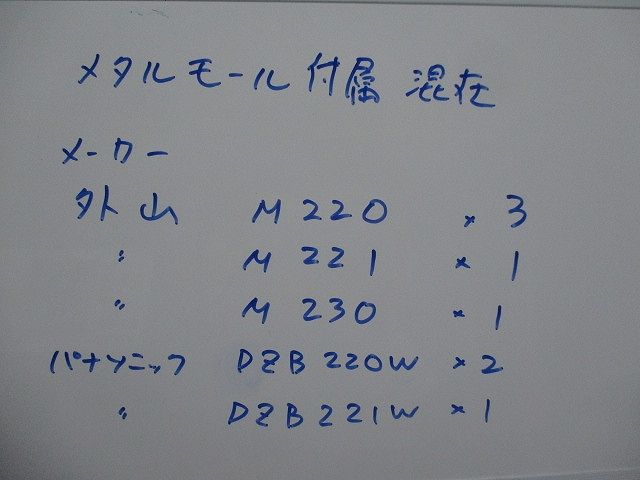 メタルモール付属 混在
メーカー
外山 M 220 × 3
〃 M 221 × 1
〃 M 230 × 1
パナソニック DZB 220W × 2
〃 DZB 221W × 1